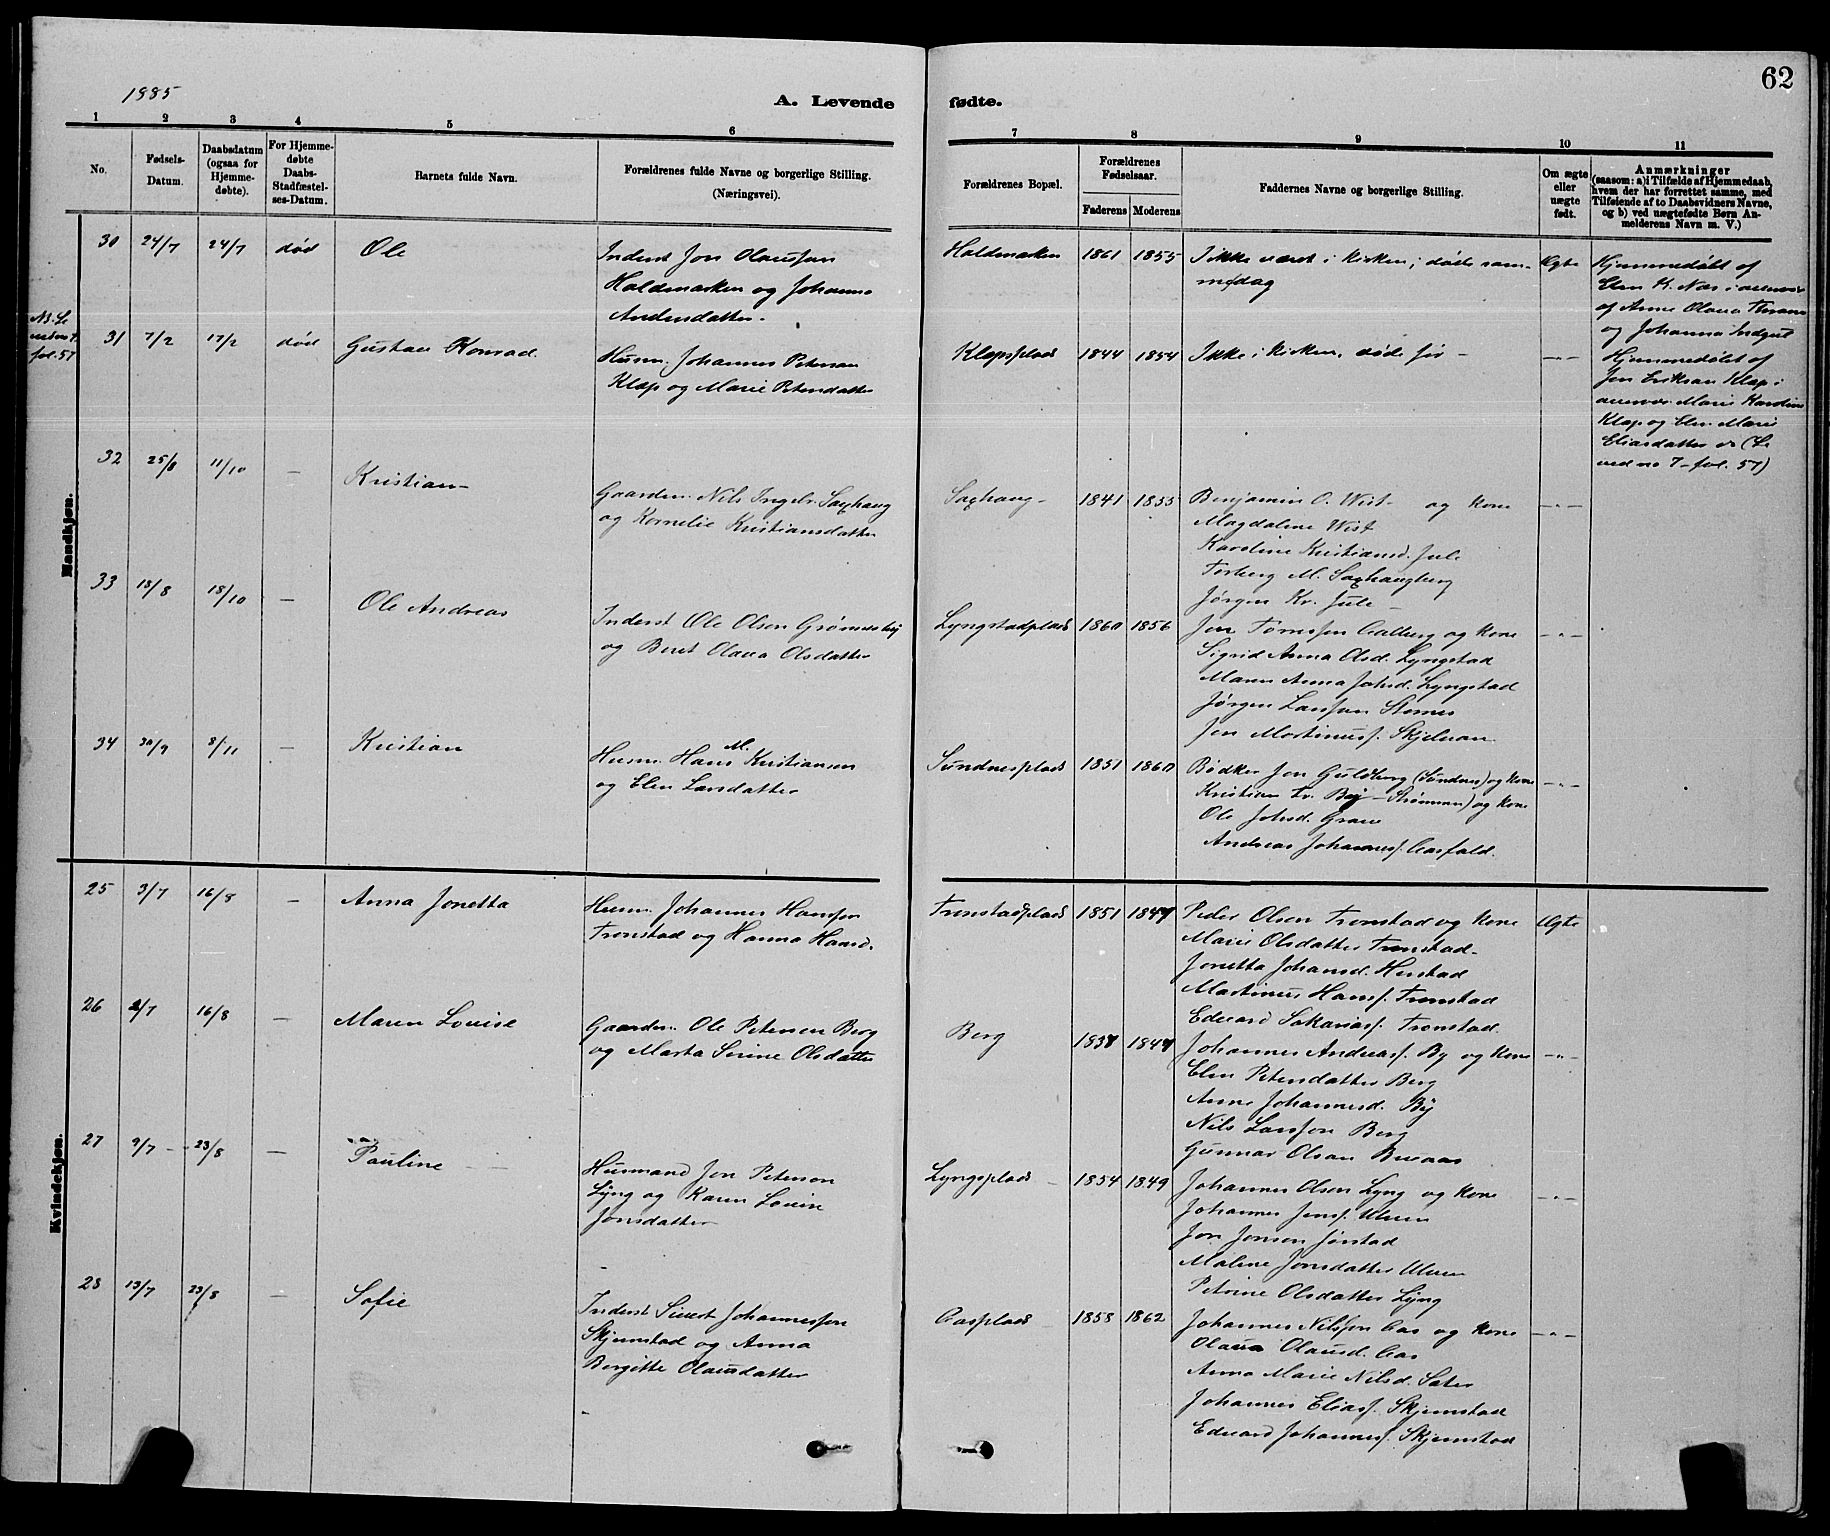 62
1885
A. Levende fødte.
1 2 3 4 5 6 7 8 9 10 11
No.
Fødsels-Datum.
Daabsdatum (ogsaa for Hjemme-døbte).
For Hjemme-døbte Daabs-Stadfæstel-ses-Datum.
Barnets fulde Navn.
Forældrenes fulde Navne og borgerlige Stilling.
(Næringsvei).
Forældrenes Bopæl.
Forældrenes Fødselsaar.
Faderens Moderens
Faddernes Navne og borgerlige Stilling.
Om ægte eller uægte født.
Anmærkninger
(saasom: a) i Tilfælde af Hjemmedaab,
hvem der har forrettet samme, med
Tilføiende af to Daabsvidners Navne,
og b) ved uægtefødte Børn An-
melderens Navn m. V.)
Mandkjøn.
30 24/7 24/7 død Ole
Inderst Jon Olausson
Haldemarken og Johanna
Andersdatter.
Haldemarken 1861 1855
Ikke været i kirken; døde sam-
me dag
Ægte
Hjemmedøbt af
Elen K. Næs i overvær
af Anne Olava
og Johanna
31 7/2 17/2 død Gustav Konrad
fol. 57
Husm. Johannes Petersen
Klæp og Marie Petersdatter
Klæpsplads 1844 1854
Ikke i kirken, døde før —
—„—
Hjemmedøbt af
Jon Eriksen Klæp i
overvær Marie Karoline
Klæp og Elen Marie
Eliasdatter
ved no 7 - fol. 57)
32 25/8 11/10 — Kristian
Gaardm. Nils Ingebr. Saxhaug
og Kornelie Kristiansdatter
Saxhaug 1841 1853
Benjamin O. Wist og kone
Magdalene Wist
Karoline Kristiansd. Jule
Torberg M. Saxhaugberg
Jørgen Kr. Jule
—„—
33 18/8 18/10 — Ole Andreas
Inderst Ole Olsen
og Beret Olava Olsdatter
Lyngstadplads 1860 1856
Jon Tomssen Aalberg og kone
Sigrid Anna Olsd. Lyngstad
Maren Anna Johsd. Lyngstad
Jørgen Larssen Stornes
Jon Martinusf. Skjelvan
—„—
34 30/9 8/11 — Kristian
Husm. Hans M. Kristiansen
og Elen Larsdatter
Sundnesplads 1851 1860
Bødker Jon Guldberg (Sundnes) og kone
Kristian Tr. Bay - Strømmen) og kone
Ole Johsd. Grane
Andreas Johannesf. Aasfald.
—„—
Kvindekjøn.
25 3/7 16/8 — Anna Jonetta
Husm. Johannes Hansson
Tronstad og Hanna Hansd.
Tronstadplads 1851 1847
Peder Olsen Tronstad og kone
Marie Olsdatter Tronstad
Jonetta Johansd. Hustad
Martinus Hansf. Tronstad
Edvard Sakariasf. Tronstad.
Ægte
26 2/7 16/8 — Maren Louise
Gaardm. Ole Petersen Berg
og Marta Sirine Olsdatter
Berg 1837 1847
Johannes Andreasf. By og kone
Elen Petersdatter Berg
Anne Johannesd. By
Nils Larsson Berg
Gunnar Olsen Bueaas
—„—
27 9/7 23/8 — Pauline
Husmand Jon Peterson
Lyng og Karen Louise
Jonsdatter
Lyngsplads 1854 1849
Johannes Olsen Lyng og kone
Johannes Jensf. Ulven
Jon Jonsen Jørstad
Malene Jonsdatter Ulven
Petrine Olsdatter Lyng
—„—
28 13/7 23/8 — Sofie
Inderst Sivert Johannesson
Skjemstad og Anna
Bergitte Olausdatter
Aasplads 1858 1862
Johannes Nilsson Aas og kone
Olava Olausd. Aas
Anna Marie Nilsd. Sater
Johannes Eliasf. Skjemstad
Edvard Johannesf. Skjemstad
—„—